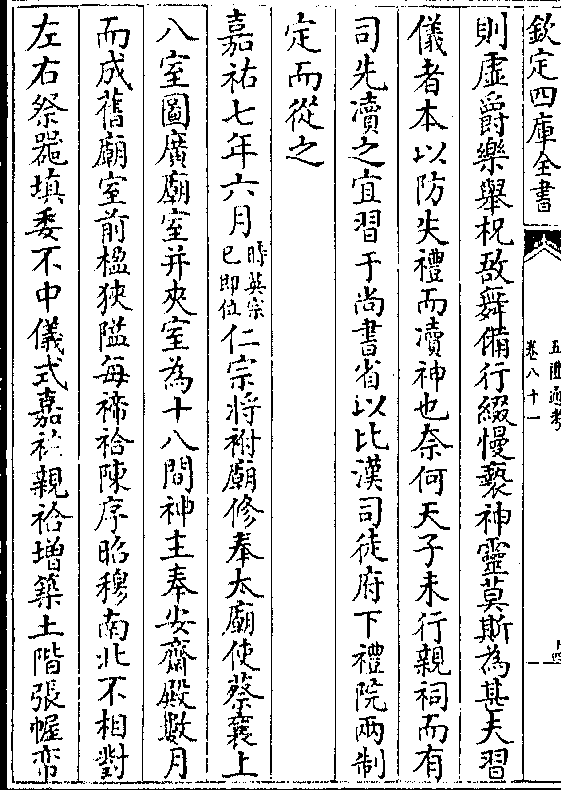 欽定四庫全書
五禮通考
卷八十一
則虛爵樂舉柷敔舞備行綴慢褻神靈莫斯為甚夫習
儀者本以防失禮而瀆神也奈何天子未行親祠而有
司先瀆之宜習于尚書省以比漢司徒府下禮院兩制
定而從之
嘉祐七年六月時英宗已即位仁宗將祔廟修奉太廟使蔡襄上
八室圖廣廟室并夾室為十八間神主奉安齋殿數月
而成舊廟室前楹狹隘每禘祫陳序昭穆南北不相對
左右祭器填委不中儀式嘉祐親祫增築土階張幄帟